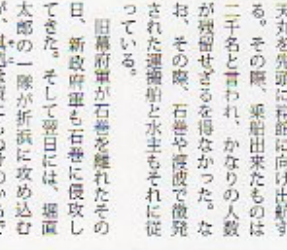 る。その際、乗船出来たものは
二千名と言われ、かなりの人数
が残留せざるを得なかった。な
お、その際、石巻や渡波で徴発
された運搬船と水主もそれに従
っている。
旧幕府軍が石巻を離れたその
日、新政府軍も石巻に侵攻し
てきた。そして翌日には、堀直
太郎の一隊が折浜に攻め込む